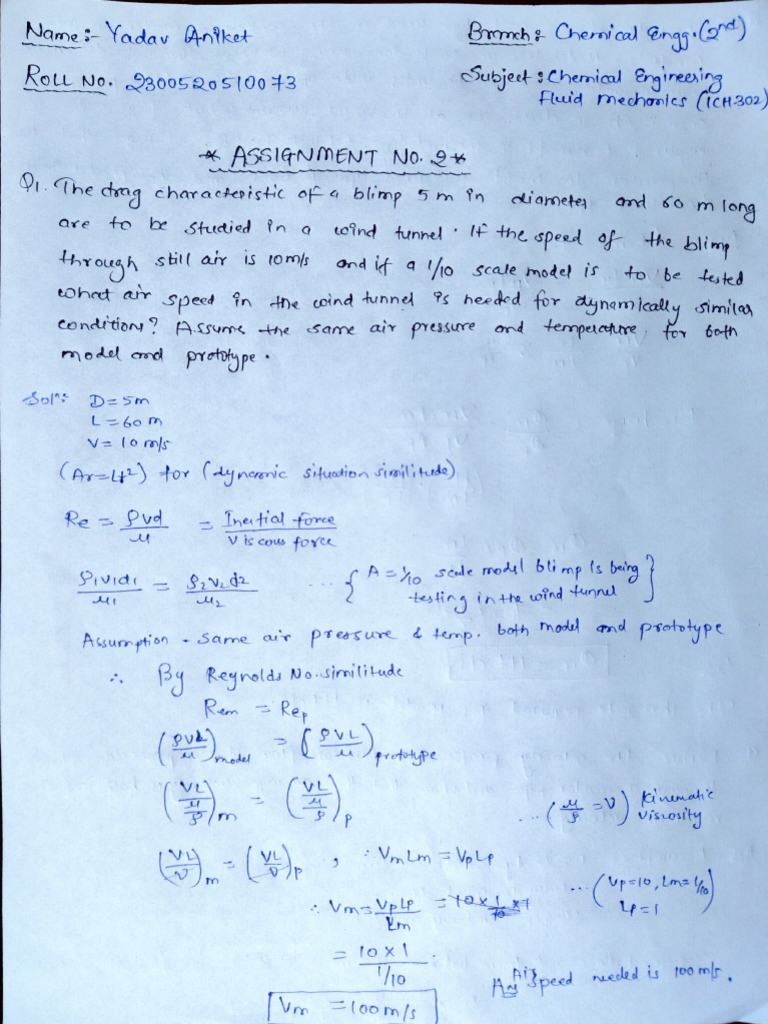 Name :- Yadav Aniket
Branch : Chemical Engg. (2nd)
ROLL NO. 2300520510073
Subject : Chemical Engineering
Fluid mechanics (ICH302)
* ASSIGNMENT NO. 2 *
Q1. The drag characteristic of a blimp 5 m in diameter and 60 m long
are to be studied in a wind tunnel. If the speed of the blimp
through still air is 10 m/s and if a 1/10 scale model is to be tested
what air speed in the wind tunnel is needed for dynamically similar
condition? Assume the same air pressure and temperature for both
model and prototype.
Soln: D = 5m
L = 60 m
V = 10 m/s
for (dynamic situation similitude)
Re = ρvd/μ = Inertial force / Viscous force
ρ1v1d1/μ1 = ρ2v2d2/μ2 ... { A = 1/10 scale model blimp is being
testing in the wind tunnel }
Assumption - same air pressure & temp. both model and prototype
∴ By Reynolds No. similitude
Rem = Rep
(ρVL/μ)model = (ρVL/μ)prototype
(VL/(μ/ρ))m = (VL/(μ/ρ))p ... (μ/ρ = ν) Kinematic viscosity
(VL/ν)m = (VL/ν)p , ∵ VmLm = VpLp
∴ Vm = VpLp/Lm ... (Vp=10, Lm=1/10
Lp=1)
= 10 x 1 / 1/10
Vm = 100 m/s
Air Speed needed is 100 m/s.